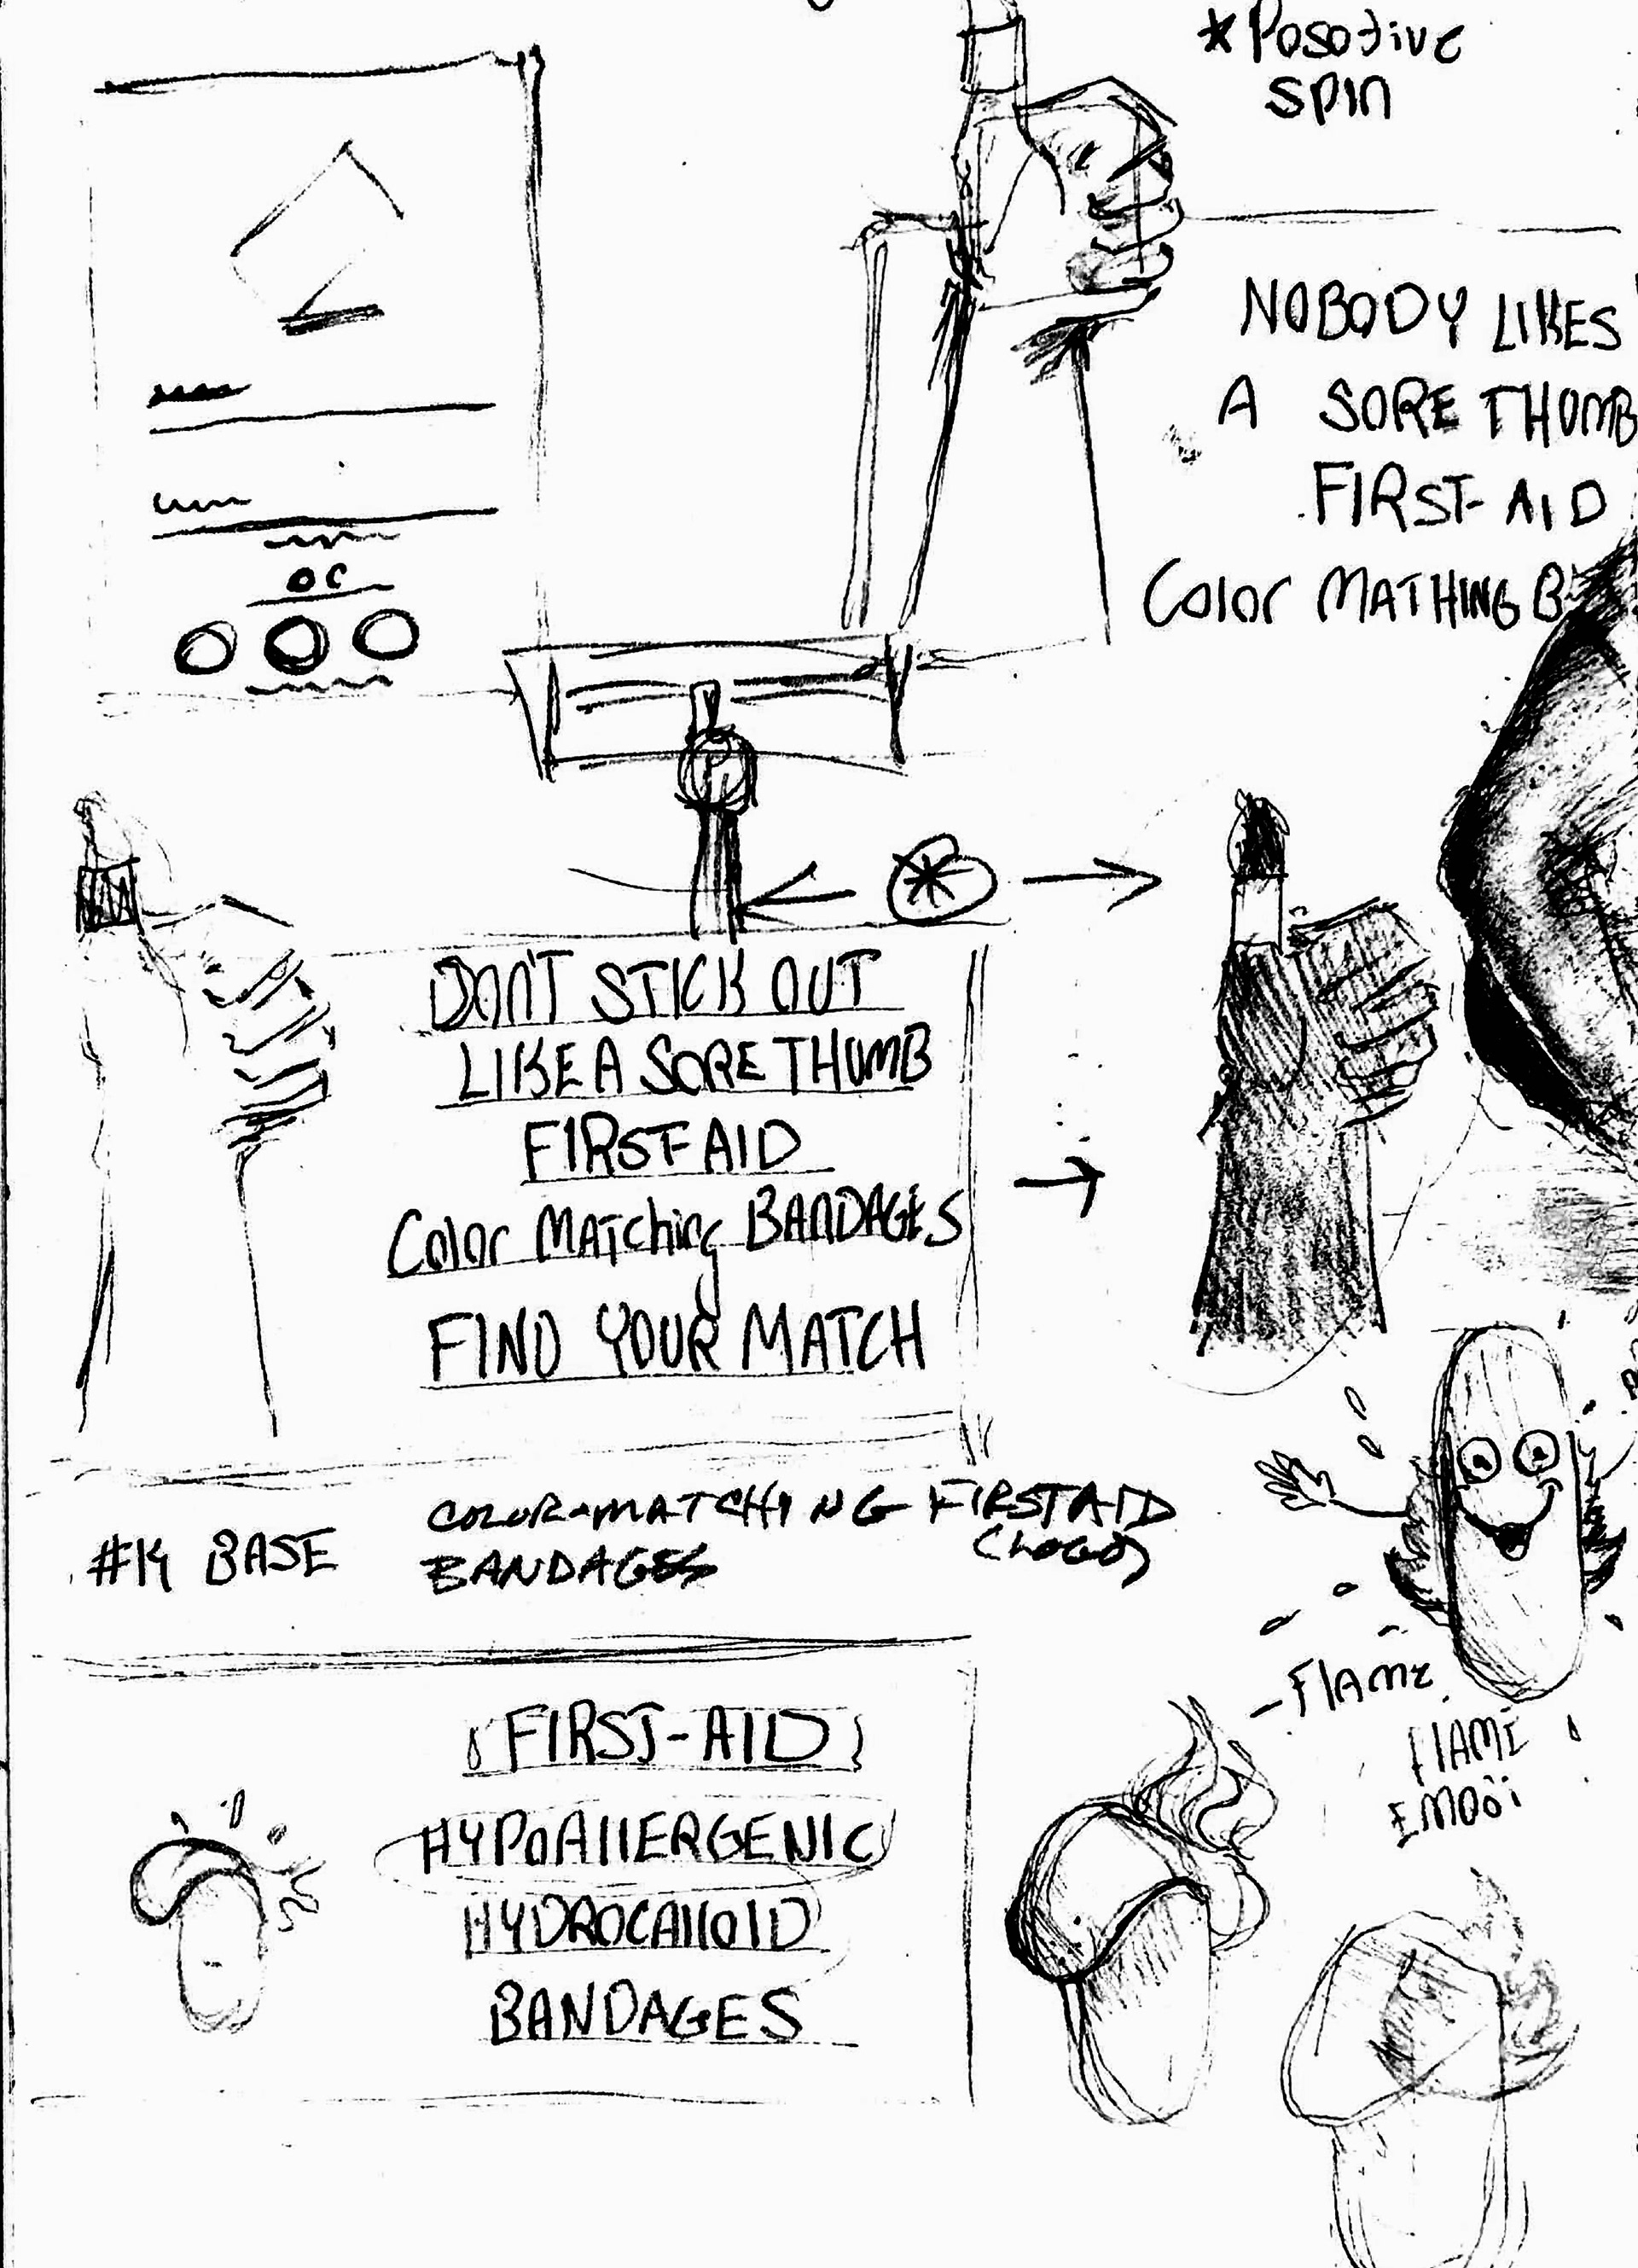 * Posotive
spin
NOBODY LIKES
A SORE THUMB
FIRST-AID
Color MATHING B
DON'T STICK OUT
LIKE A SORE THUMB
FIRST AID
Color MATching BANDAGES
FIND YOUR MATCH
BASE
COLOR-MATCHING FIRST AID
BANDAGES (LOGO)
- Flame
FLAME
EMOJI
FIRST-AID
HYPOAllERGENIC
HYDROCAllOID
BANDAGES